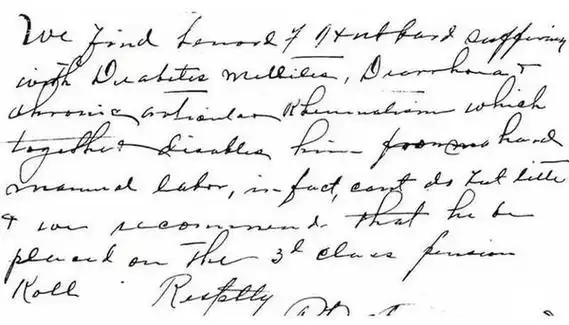 We find Lenard J Hubbard suffering
with Diabetes Mellites, Diarrhoea &
chronic articular Rheumatism which
together disables him from hard
manual labor, in fact, cant do but little
& we recommend that he be
placed on the 3d class pension
Roll Resptlly